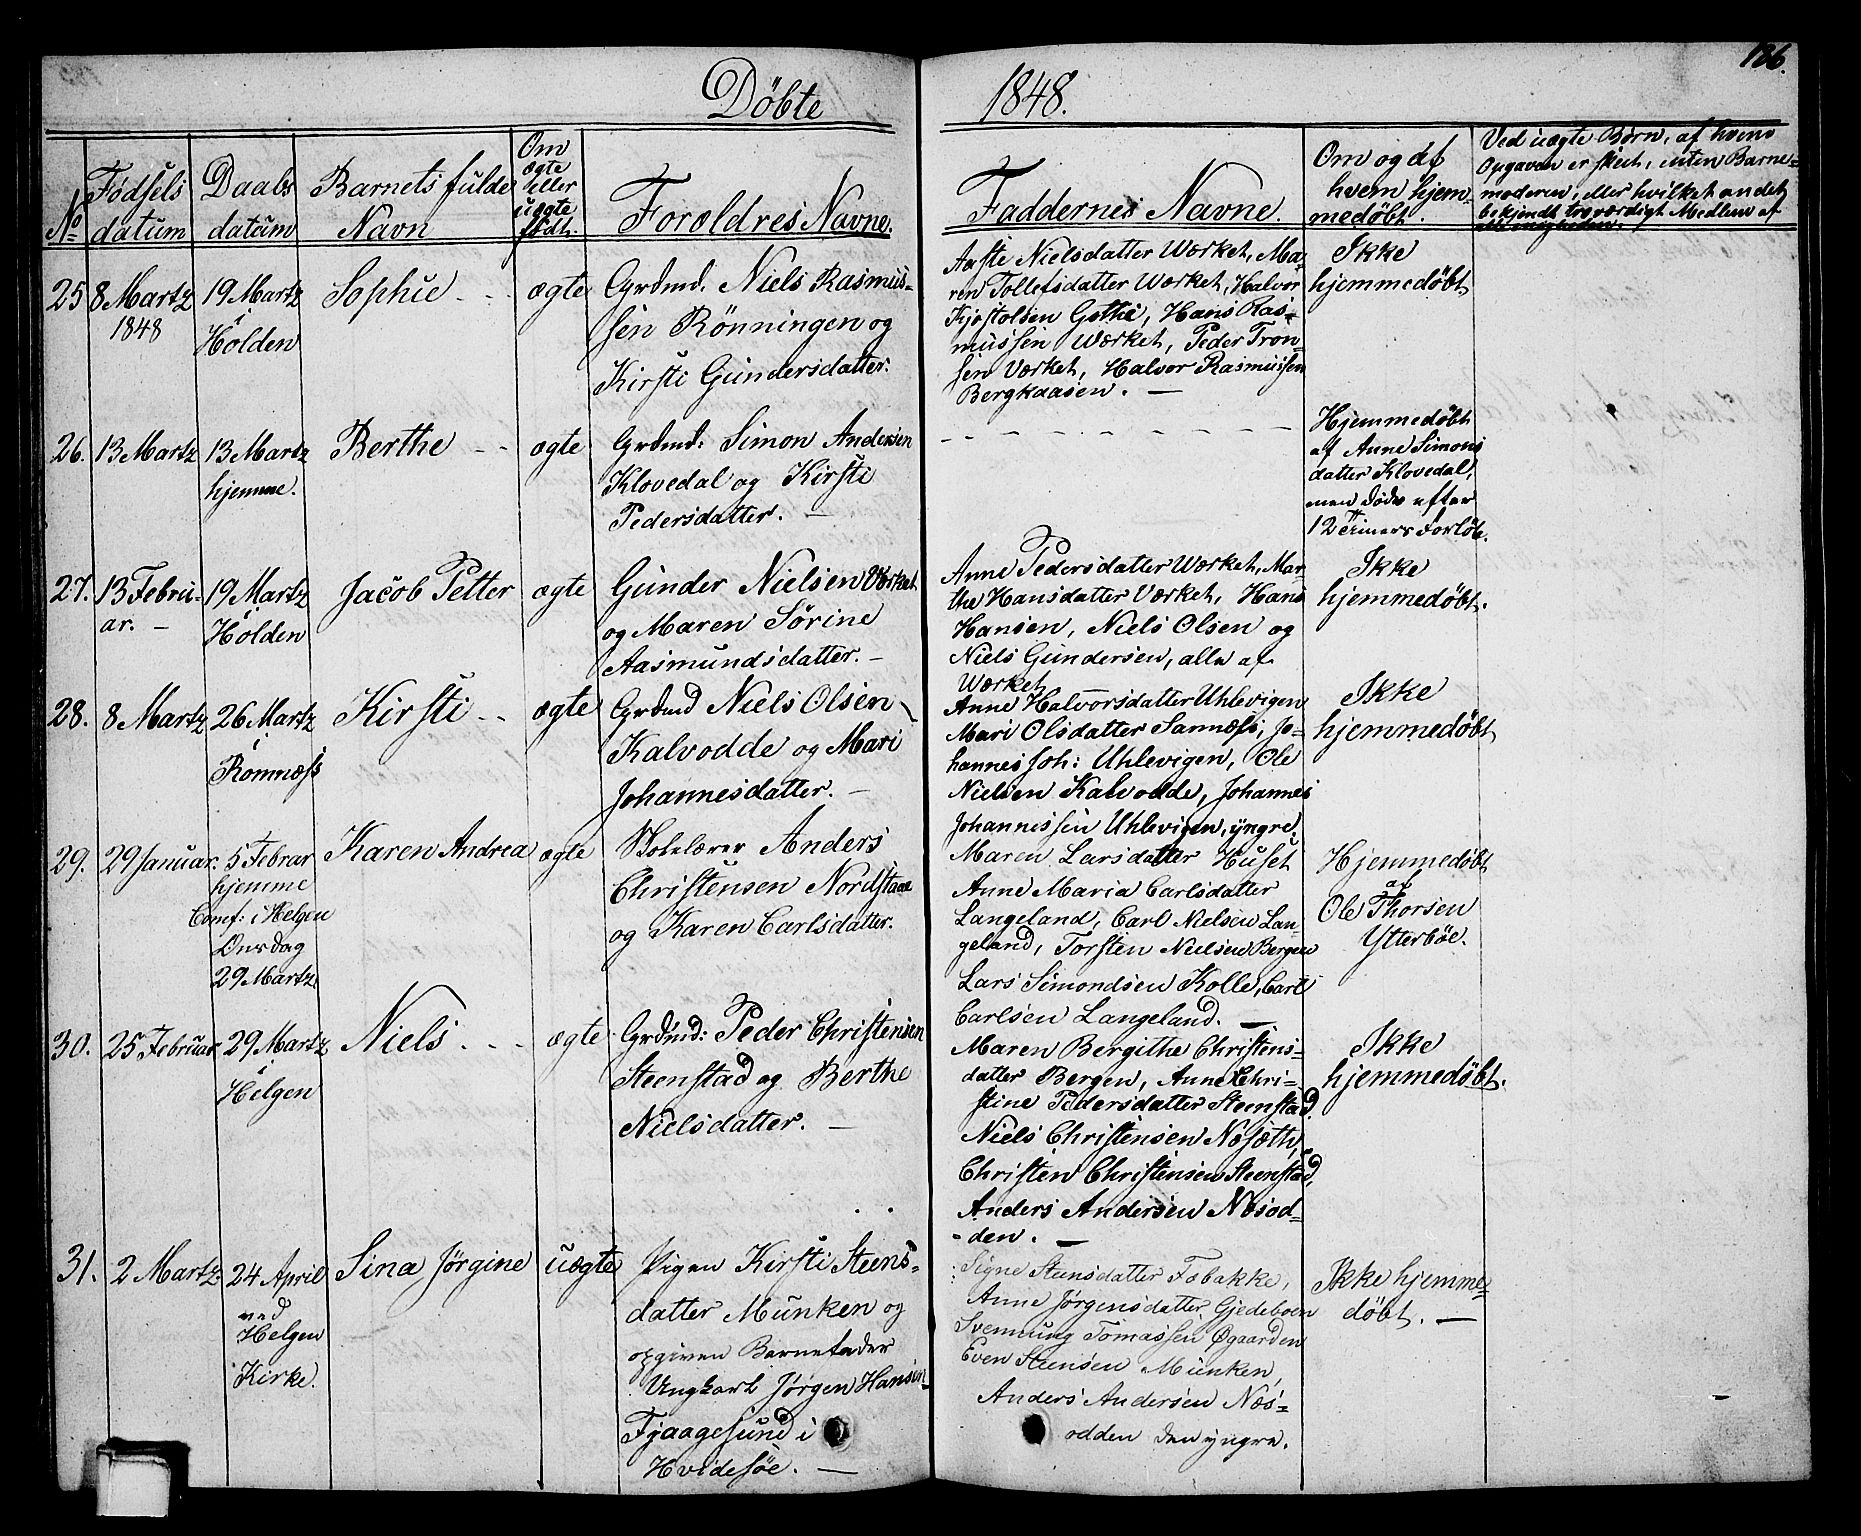 Döbte
1848.
186.
No
Fødsels
datum
Daabs
datum
Barnets fulde
Navn
Om
ægte
eller
uægte
født.
Foroldres Navne.
Faddernes Navne.
Om og af
hvem hjem
medøbt.
Ved uægte Børn, af hvem
Opgaven er skeet, enten Barne-
moderen, eller hvilket andet
bekjendt troværdigt Medlem af
25
8 Martz
1848
19 Martz
i
Holden
Sophie
ægte
Grdmd. Niels Rasmus-
sen Rönningen og
Kirsti Gundersdatter.
Aaste Nielsdatter Værket, Ma-
ren Tollefsdatter Værket, Halvor
Kjøstolsen Gothe, Hans Ras-
mussen Værket, Peder Tron-
sen Værket, Halvor Rasmussen
Bergkaasen. —
Ikke
hjemmedøbt
26.
13 Martz
13 Martz
hjemme.
Berthe
ægte
Grdmd: Simon Andersen
Klovedal og Kirsti
Pedersdatter. —
Hjemmedøbt
af Anne Simons
datter Klovedal,
men døde efter
12 Timers Forløb.
27.
13 Febru-
ar. —
19 Martz
i
Holden
Jacob Petter
ægte
Gunder Nielsen Værket
og Maren Sörine
Aasmundsdatter. —
Anne Pedersdatter Værket, Mar-
the Hansdatter Værket, Hans
Hansen, Niels Olsen og
Niels Gundersen, alle af
Værket
Ikke
hjemmedøbt.
28.
8 Martz
26 Martz
i
Romnæss
Kirsti
ægte
Grdmd Niels Olsen
Kalvodde og Mari
Johannesdatter. —
Anne Halvorsdatter Uhlevigen
Mari Olsdatter Sannæss, Jo-
hannes Joh: Uhlevigen, Ole
Nielsen Kalvodde, Johannes
Johannessen Uhlevigen, yngre.
Ikke
hjemmedøbt
29.
29 Januar.
5 Febrar
hjemme
Comf: i Helgen
Onsdag
29 Martz
Karen Andrea
ægte
Skolelærer Anders
Christensen Nordstaae
og Karen Carlsdatter.
Maren Larsdatter Huset
Anne Maria Carlsdatter
Langeland, Carl Nielsen Lan-
geland, Torsten Nielsen Bergen
Lars Simondsen Kolle, Carl
Carlsen Langeland. —
Hjemmedøbt
af
Ole Thorsen
Ytterböe.
30.
25 Februar
29 Martz
i
Helgen
Niels
ægte
Grdmd: Peder Christensen
Steenstad og Berthe
Nielsdatter. —
Maren Bergithe Christens-
datter Bergen, Anne Chri-
stine Pedersdatter Steenstad,
Niels Christensen Nosætte,
Christen Christensen Steenstad,
Anders Andersen Næsod-
den. —
Ikke
hjemmedøbt.
31.
2 Martz
24 April
ved
Helgen
Kirke.
Sina Jørgine
uægte
Pigen Kirsti Steens-
datter Munken og
opgiven Barnefader
Ungkarl Jørgen Hansen
Fjaagesund i
Hvidesöe. —
Signe Steensdatter Fobakke,
Anne Jørgensdatter Gjedeboen
Svennung Tomassen Øgaarden
Even Steensen Munken,
Anders Andersen Næs-
odden den yngre.
Ikke hjemme-
döbt. —